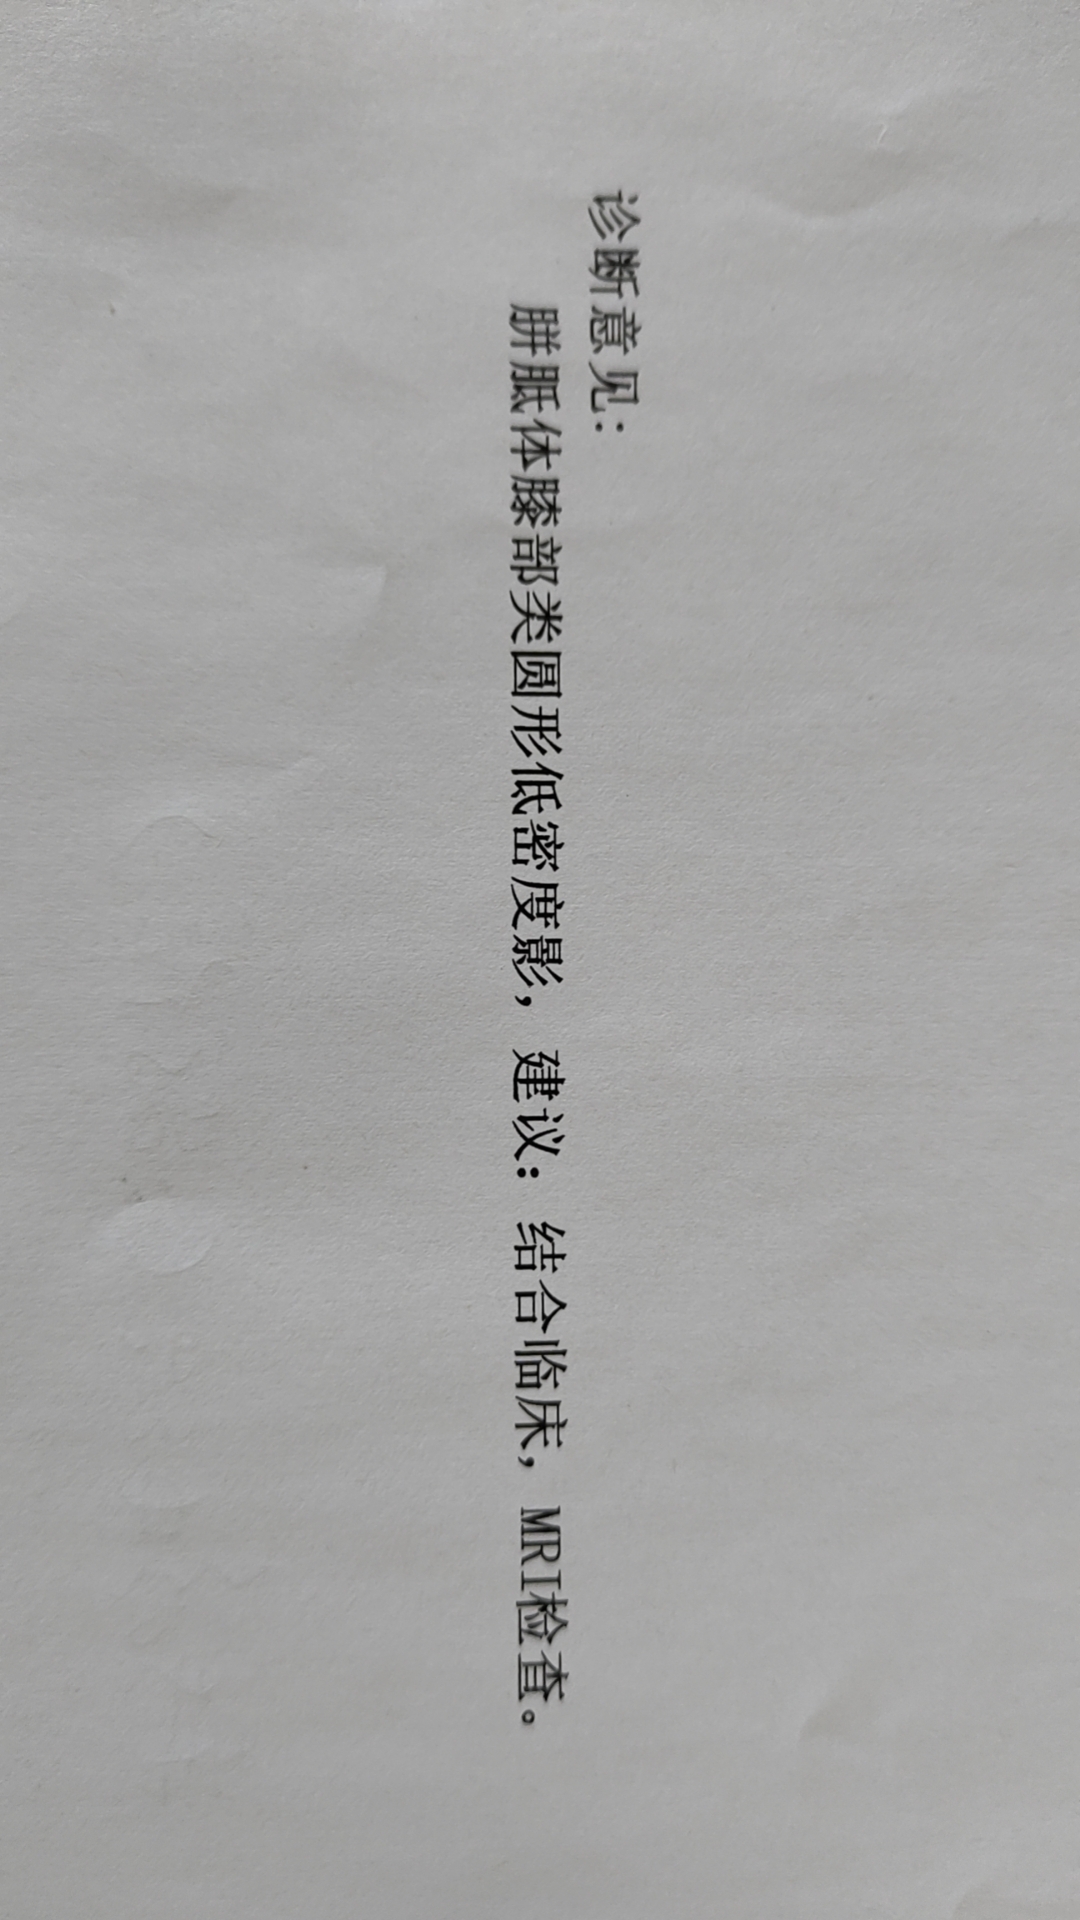 诊断意见：
胼胝体膝部类圆形低密度影，建议：结合临床，MRI检查。